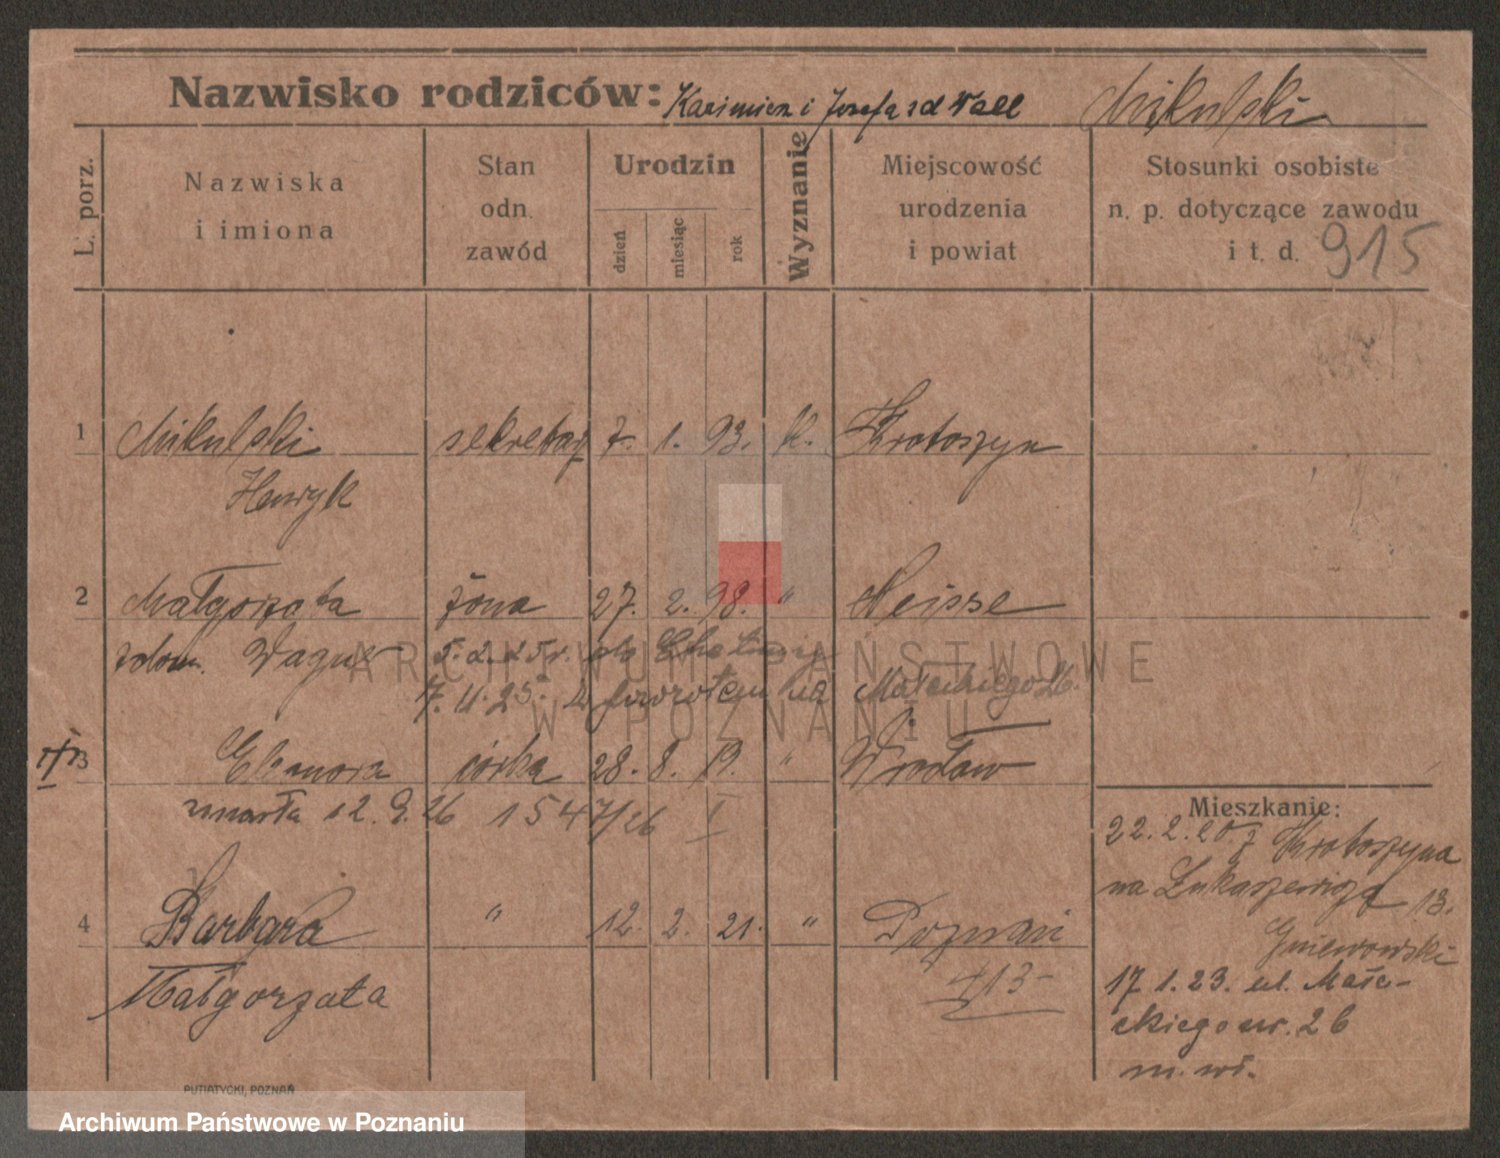 Nazwisko rodziców: Kazimierz i Józefa z d Wall Mikulski
L. porz.
Nazwiska i imiona
Stan odn. zawód
Urodzin
dzień miesiąc rok
Wyznanie
Miejscowość urodzenia i powiat
Stosunki osobiste n. p. dotyczące zawodu i t. d. 915
1 Mikulski sekretarz 7. 1. 93. k. Krotoszyn
Henryk
2 Małgorzata żona 27. 2. 98. " Neisse
zdom. Wagner 5. 2. 25 r. do
7. 4. 25 z powrotem na Małeckiego 26.
3 Eleonora córka 28. 8. 19. " Wrocław
zmarła 12. 9. 26 1547/26 I
4 Barbara " 12. 2. 21. " Poznań
Małgorzata 713-
Mieszkanie:
22. 2. 20 z Krotoszyna
na Łukaszewicza 13.
Gniewowski
17 1. 23. ul. Małe-
ckiego nr. 26
m. wł.
PUTIATYCKI, POZNAŃ
ARCHIWUM PAŃSTWOWE
W POZNANIU
Archiwum Państwowe w Poznaniu